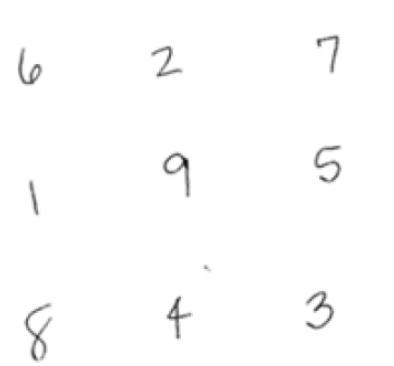 6 2 7
1 9 5
8 4 3